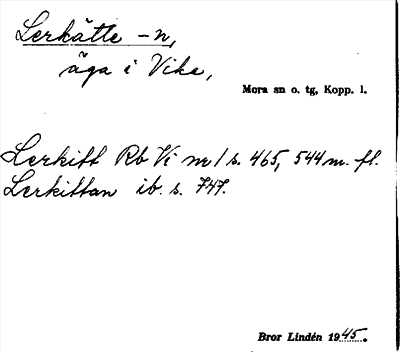 Lerkätte -n,
äga i Vika,
Mora sn o. tg, Kopp. l.
Lerkitt Rb Vi m/ s. 465, 544 m. fl.
Lerkittan ib. s. 747.
Bror Lindén 1945.